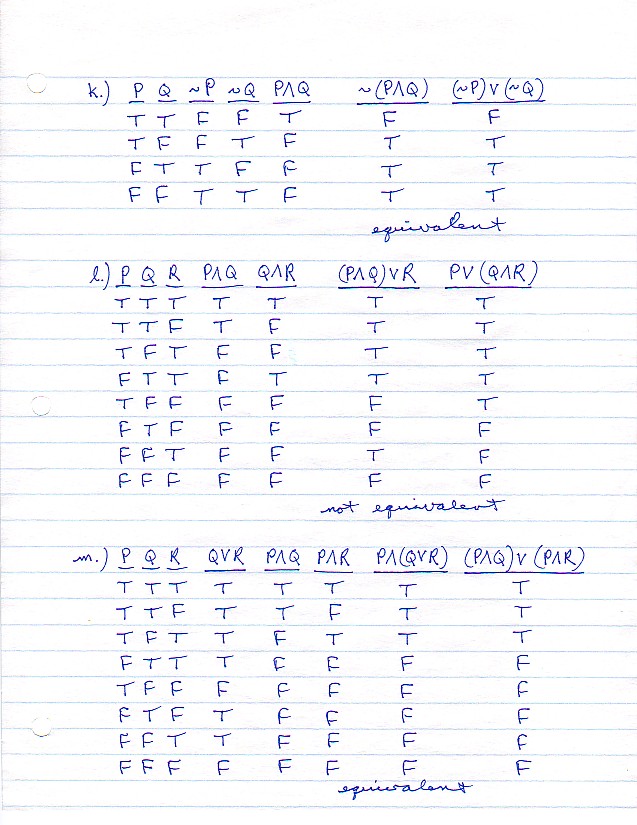 k.) P Q ~P ~Q P∧Q ~(P∧Q) (~P)∨(~Q)
T T F F T F F
T F F T F T T
F T T F F T T
F F T T F T T
equivalent
l.) P Q R P∧Q Q∧R (P∧Q)∨R P∨(Q∧R)
T T T T T T T
T T F T F T T
T F T F F T T
F T T F T T T
T F F F F F T
F T F F F F F
F F T F F T F
F F F F F F F
not equivalent
m.) P Q R Q∨R P∧Q P∧R P∧(Q∨R) (P∧Q)∨(P∧R)
T T T T T T T T
T T F T T F T T
T F T T F T T T
F T T T F F F F
T F F F F F F F
F T F T F F F F
F F T T F F F F
F F F F F F F F
equivalent